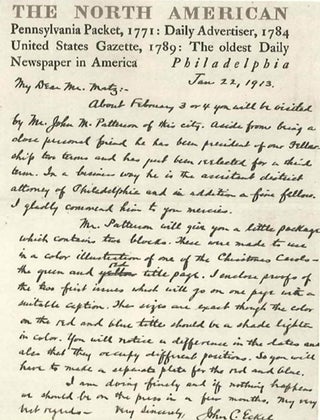 THE NORTH AMERICAN
Pennsylvania Packet, 1771: Daily Advertiser, 1784
United States Gazette, 1789: The oldest Daily
Newspaper in America Philadelphia
Jan 22, 1913.
My Dear Mr. Metz:-
About February 3 or 4 you will be visited
by Mr. John M. Patterson of this city. Aside from being a
close personal friend he has been president of our Fellow
ship two terms and has just been reelected for a third
term. In a business way he is the assistant district
attorney of Philadelphia and in addition a fine fellow.
I gladly commend him to you mercies.
Mr. Patterson will give you a little package
which contains two blocks. These were made to use
in a color illustration of one of the Christmas Carols -
the green and red title page. I enclose proofs of
the two first issues which will go on one page with a
suitable caption. The sizes are exact though the color
on the red and blue title should be a shade lighter
in color. You will notice a difference in the dates and
also that they occupy different positions. So you will
have to made a separate plate for the red and blue.
I am doing finely and if nothing happens
we should be on the press in a few months. My very
best regards - Very Sincerely, John C. Eckel